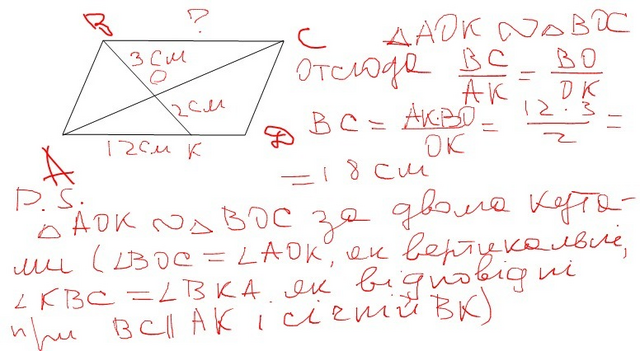 B ? C
3 см
O
2 см
A 12 см K D
△AOK ∾ △BOC
отсюда BC/AK = BO/OK
BC = AK·BO/OK = 12·3/2 =
= 18 см
P.S.
△AOK ∾ △BOC за двома кута-
ми (∠BOC = ∠AOK, як вертикальні,
∠KBC = ∠BKA як відповідні
при BC ∥ AK і січній BK)